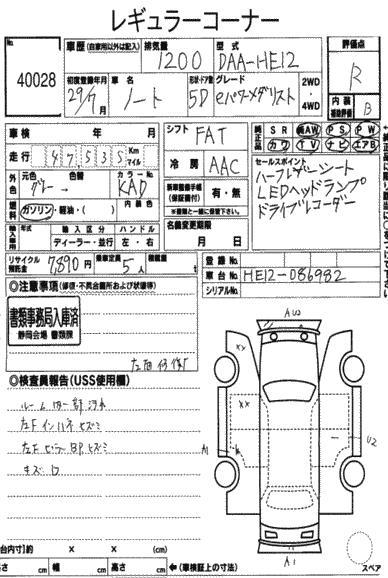 レギュラーコーナー
No.
40028
車歴(自家用以外は記入)
排気量
1200
型式
DAA-HE12
評価点
R
初度登録年月
29/7
車名
ノート
形状・ドア数
5D
グレード
eパワーメダリスト
2WD・4WD
内装補助評価
B
車検 年 月
シフト
FAT
純正品
SR AW PS PW
カワ TV ナビ エアB
走行
47535
Km
マイル
冷房
AAC
セールスポイント
ハーフレザーシート
LEDヘッドランプ
ドライブレコーダー
外色
元色
グレー →
色替
カラーNo.
KAD
燃料
ガソリン・軽油・( )
内装色
新車整備手帳(保証書付)
有・無
※書類と一緒に保管下さい。
輸入車用
年式
輸入区分
ディーラー・並行
ハンドル
左・右
名義変更期限
月 日
リサイクル預託金
7,890円
乗車定員
5人
積載量
登録No.
車台No.
HE12-086982
シリアルNo.
◎注意事項(修復・不具合箇所および状態等)
書類事務局入庫済
静岡会場 書類課
◎検査員報告(USS使用欄)
ルーム内一部汚れ
左Fインハネヒズミ
左FピラーBPヒズミ
キズ凹
AU2
XX
XX
A1
U2
A1
スペア
台内寸)約 X X (cm)
長さ cm 幅 cm 高さ cm ←(車検証上の寸法)